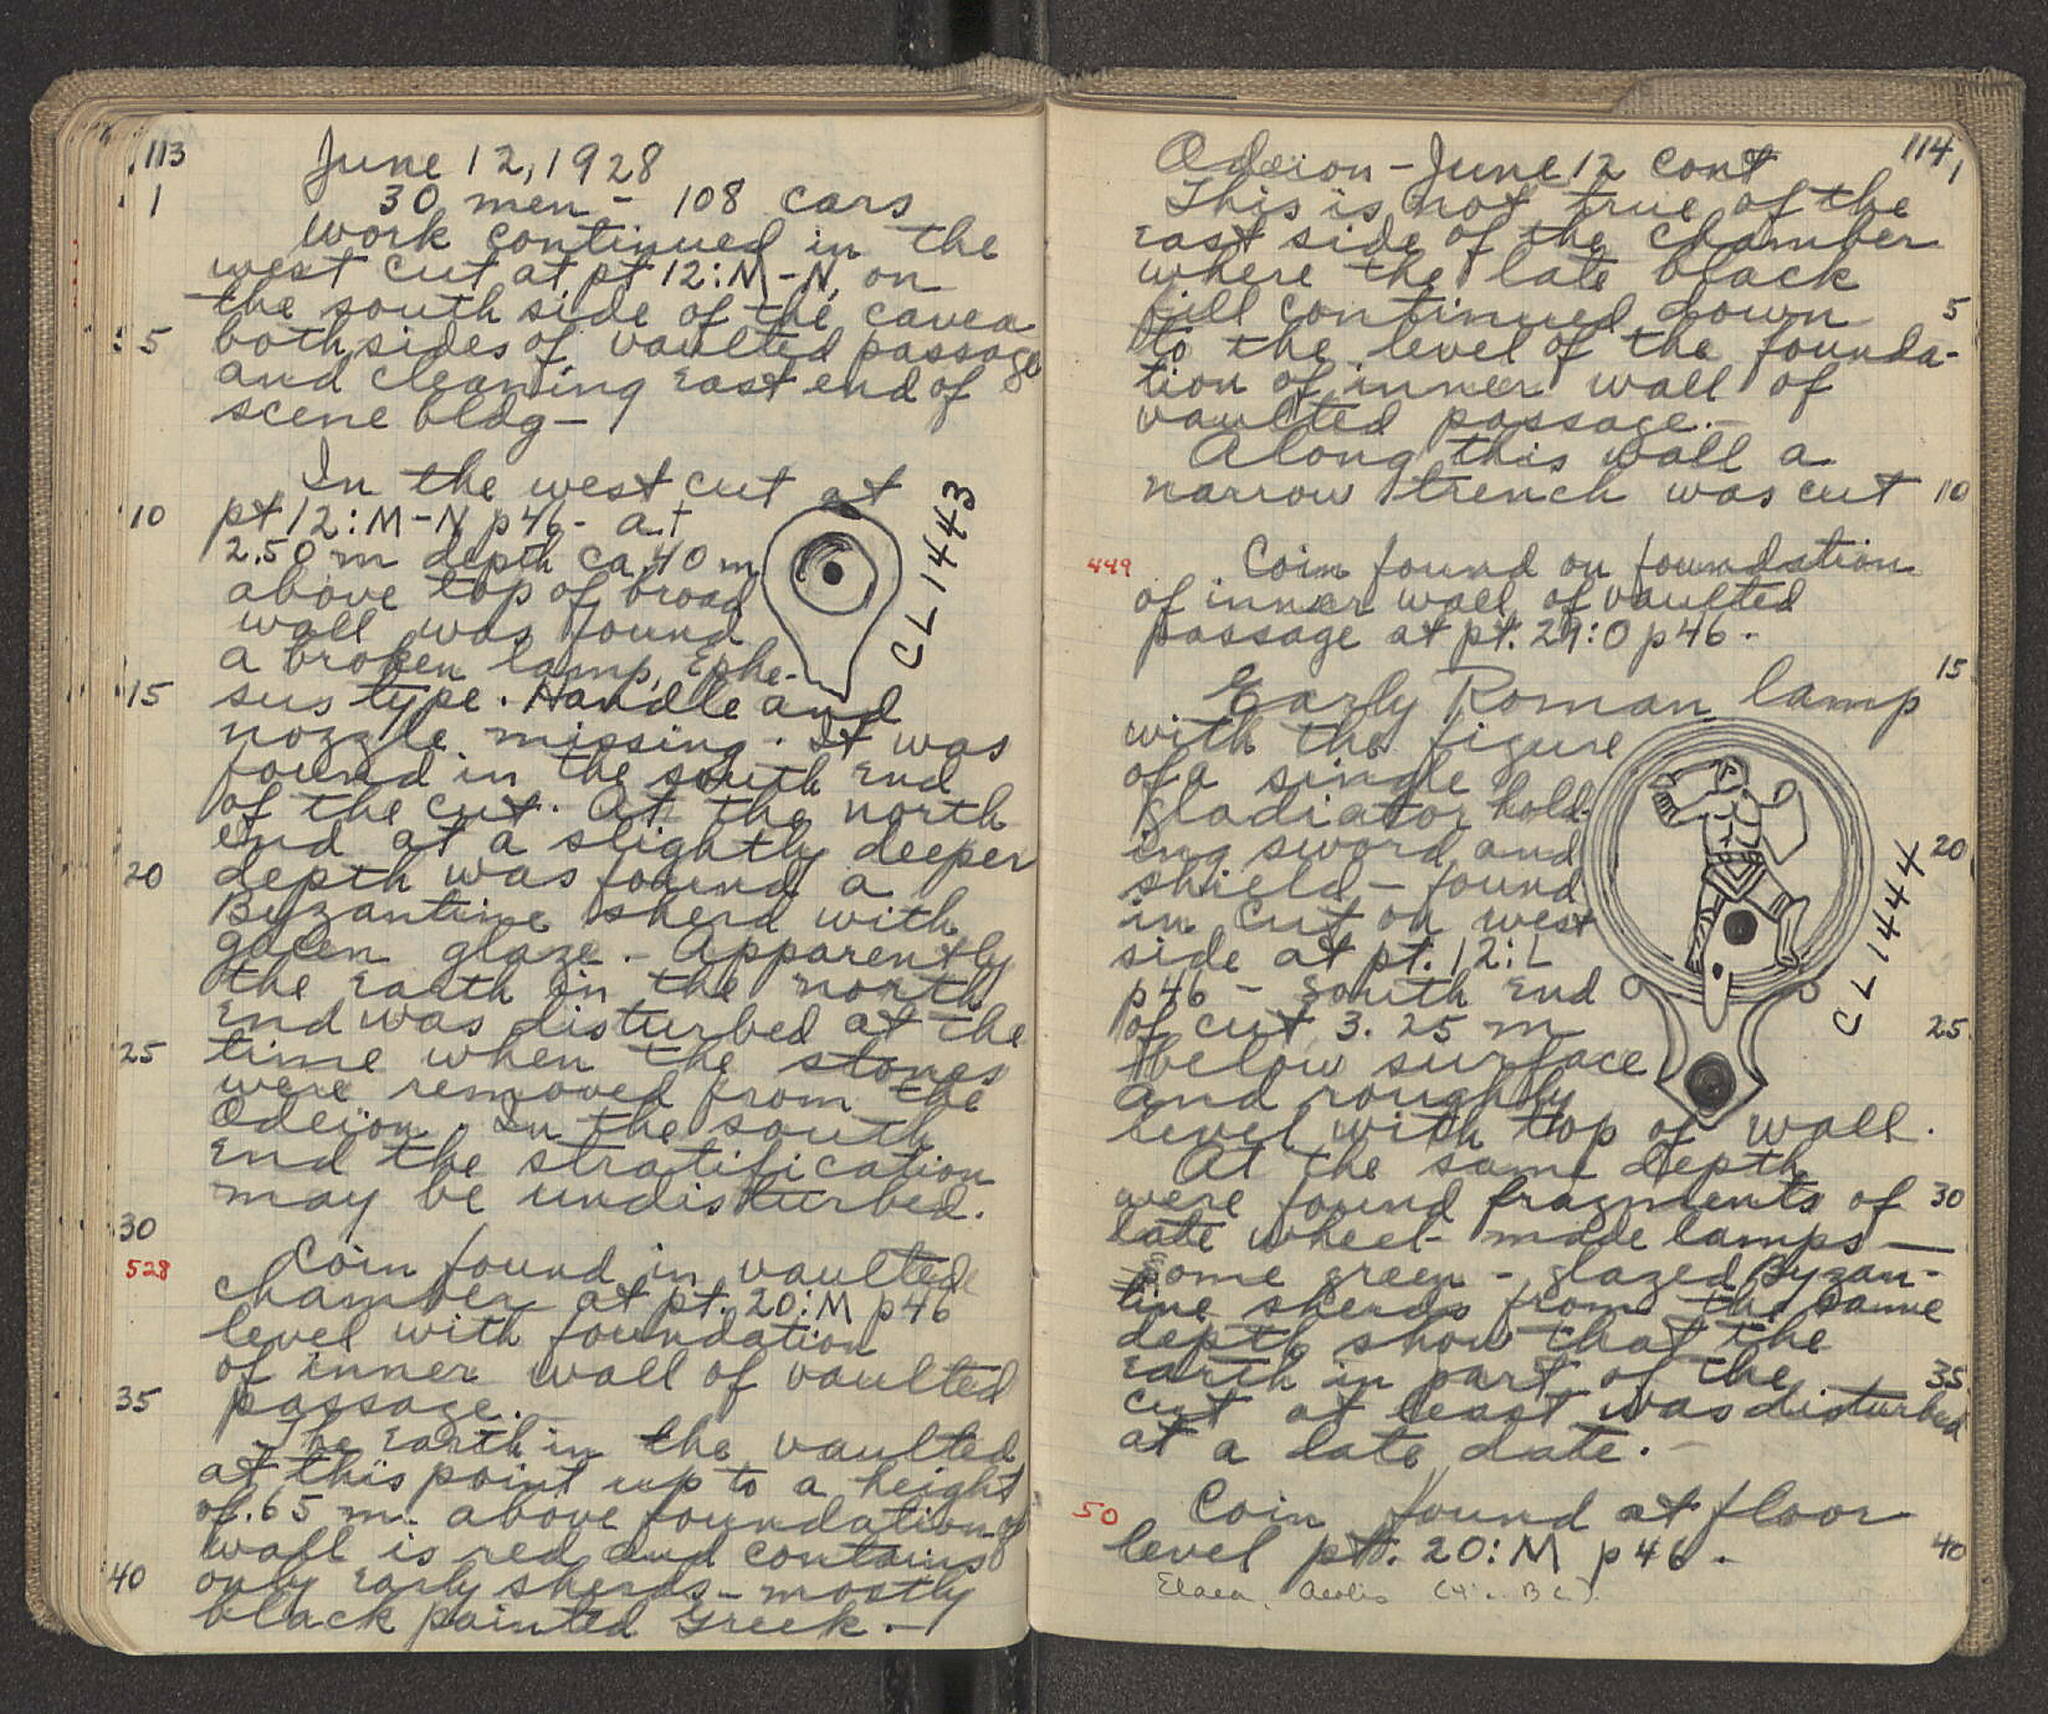 113
June 12, 1928
1
30 men - 108 cars
work continued in the
west cut at pt 12:M-N, on
the south side of the cavea
5
both sides of vaulted passage
and cleaning east end of
scene bldg -
In the west cut at
10
pt 12:M-N p46 - at
2.50 m depth ca .40 m
above top of broad
wall was found
a broken lamp, Ephe-
15
sus type. Handle and
nozzle missing. It was
found in the south end
of the cut. At the north
end at a slightly deeper
20
depth was found a
Byzantine sherd with
green glaze. - Apparently
the earth in the north
end was disturbed at the
25
time when the stones
were removed from the
Odeion. In the south
end the stratification
may be undisturbed.
30
528
Coin found in vaulted
chamber at pt. 20:M p46
level with foundation
of inner wall of vaulted
35
passage. -
The earth in the vaulted
at this point up to a height
of .65 m. above foundation of
wall is red and contains
40
only early sherds - mostly
black painted Greek. -
CL 1443
114
Odeion - June 12 cont
1
This is not true of the
east side of the chamber
where the late black
fill continued down
5
to the level of the founda-
tion of inner wall of
vaulted passage. -
Along this wall a
narrow trench was cut
10
449
Coin found on foundation
of inner wall of vaulted
passage at pt. 29:O p46 -
15
Early Roman lamp
with the figure
of a single
gladiator hold-
ing sword and
20
shield - found
in cut on west
side at pt. 12:L
p46 - South end
of cut 3.25 m
25
below surface
and roughly
level with top of wall.
At the same depth
were found fragments of
30
late wheel-made lamps -
Some green-glazed Byzan-
tine sherds from the same
depth show that the
earth in part of the
35
cut at least was disturbed
at a late date. -
50
Coin found at floor
level pt. 20:M p46 -
40
Elaea, Aeolis (4th c. BC).
CL 1444